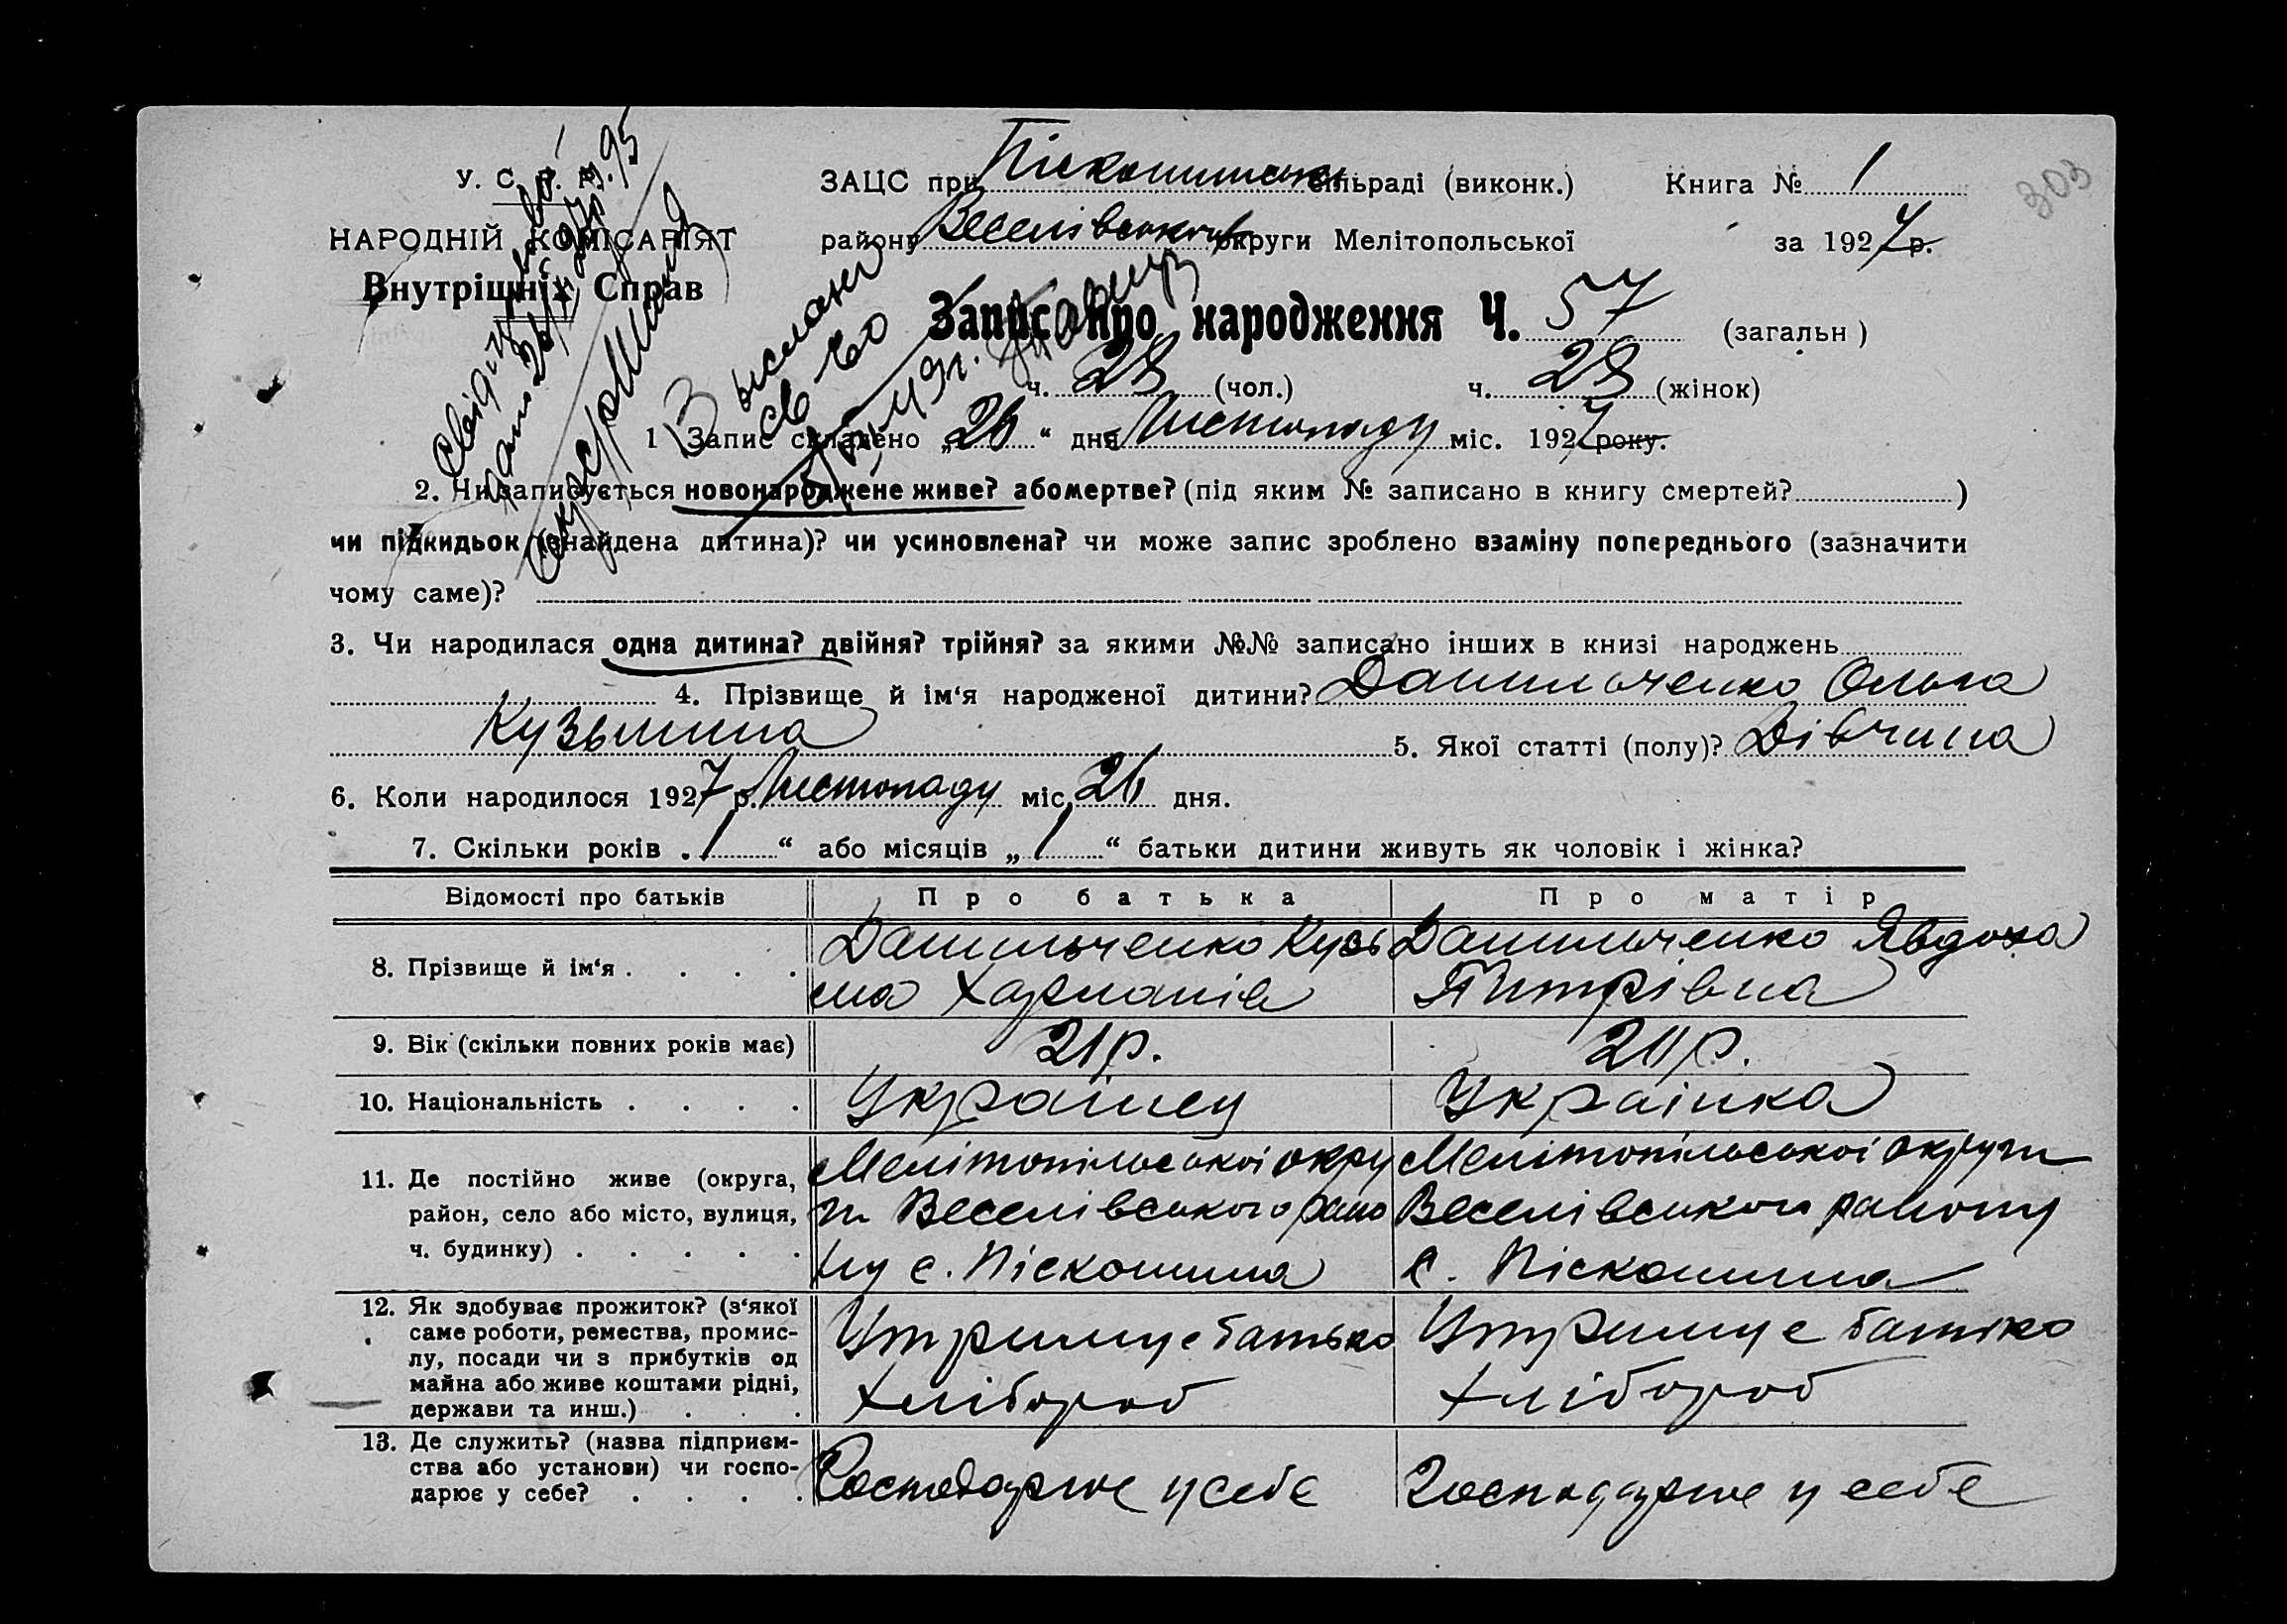 У. С. Р. Р.
НАРОДНІЙ КОМІСАРІЯТ
Внутрішніх Справ
ЗАЦС при Піскошинськ сільраді (виконк.) Книга № 1
303
району Веселівського округи Мелітопольської за 1927 р.
Запис про народження Ч. 57 (загальн )
ч. 28 (чол.) ч. 29 (жінок)
1 Запис складено „26“ дня Листопаду міс. 1927 року.
2. Чи записується новонароджене живе? або мертве? (під яким № записано в книгу смертей? )
чи підкидьок (знайдена дитина)? чи усиновлена? чи може запис зроблено взаміну попереднього (зазначити
чому саме)?
3. Чи народилася одна дитина? двійня? трійня? за якими №№ записано інших в книзі народжень
4. Прізвище й ім‘я народженої дитини? Данильченко Ольга
Кузьмина 5. Якої статті (полу)? Дівчина
6. Коли народилося 1927 р. Листопаду міс. 26 дня.
7. Скільки років „1“ або місяців „1“ батьки дитини живуть як чоловік і жінка?
Відомості про батьків Про батька Про матір
8. Прізвище й ім‘я . . . . Данильченко Кузь Данильченко Явдоха
ма Харланів Питрівна
9. Вік (скільки повних років має) 21 р. 20 р.
10. Національність . . . . Українец Украінка
11. Де постійно живе (округа, Мелітопільськоі окру Мелітопільськоі округи
район, село або місто, вулиця, ги Веселівського райо Веселівського району
ч. будинку) . . . . . ну с. Піскошина с. Піскошина
12. Як здобуває прожиток? (з‘якої
саме роботи, ремества, промис- Утримує батько Утримує батько
лу, посади чи з прибутків од
майна або живе коштами рідні, хлібороб хлібороб
держави та инш.) . . .
13. Де служить? (назва підприєм-
ства або установи) чи госпо- Господарює у себе Господарює у себе
дарює у себе? . . . .